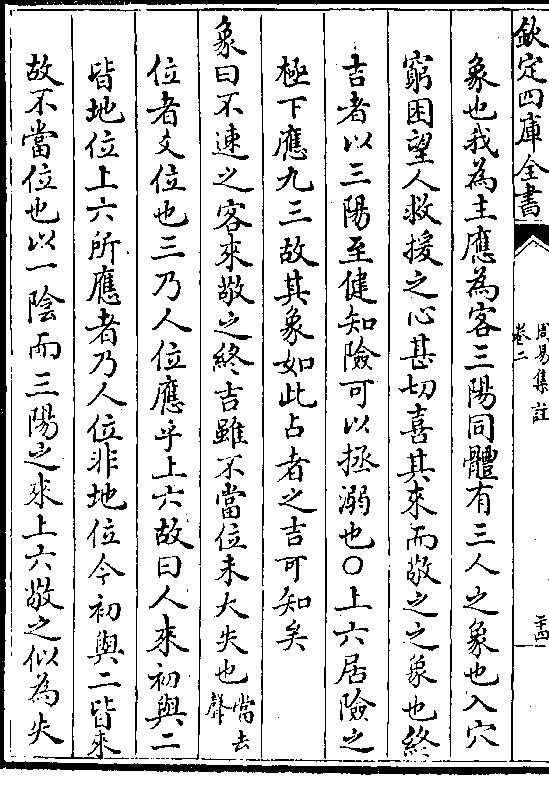 欽定四庫全書
周易集註
卷二
二十四
象也我為主應為客三陽同體有三人之象也入穴
窮困望人救援之心甚切喜其來而敬之之象也終
吉者以三陽至健知險可以拯溺也○上六居險之
極下應九三故其象如此占者之吉可知矣
象曰不速之客來敬之終吉雖不當位未大失也當去聲
位者爻位也三乃人位應乎上六故曰人來初與二
皆地位上六所應者乃人位非地位今初與二皆來
故不當位也以一陰而三陽之來上六敬之似為失